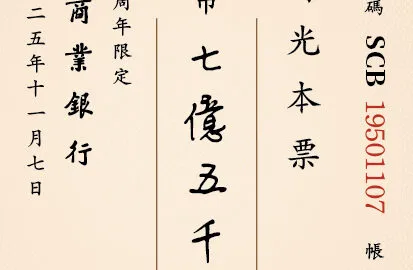 碼 SCB 19501107 帳
光本票
七億五千
周年限定
商業銀行
二五年十一月七日